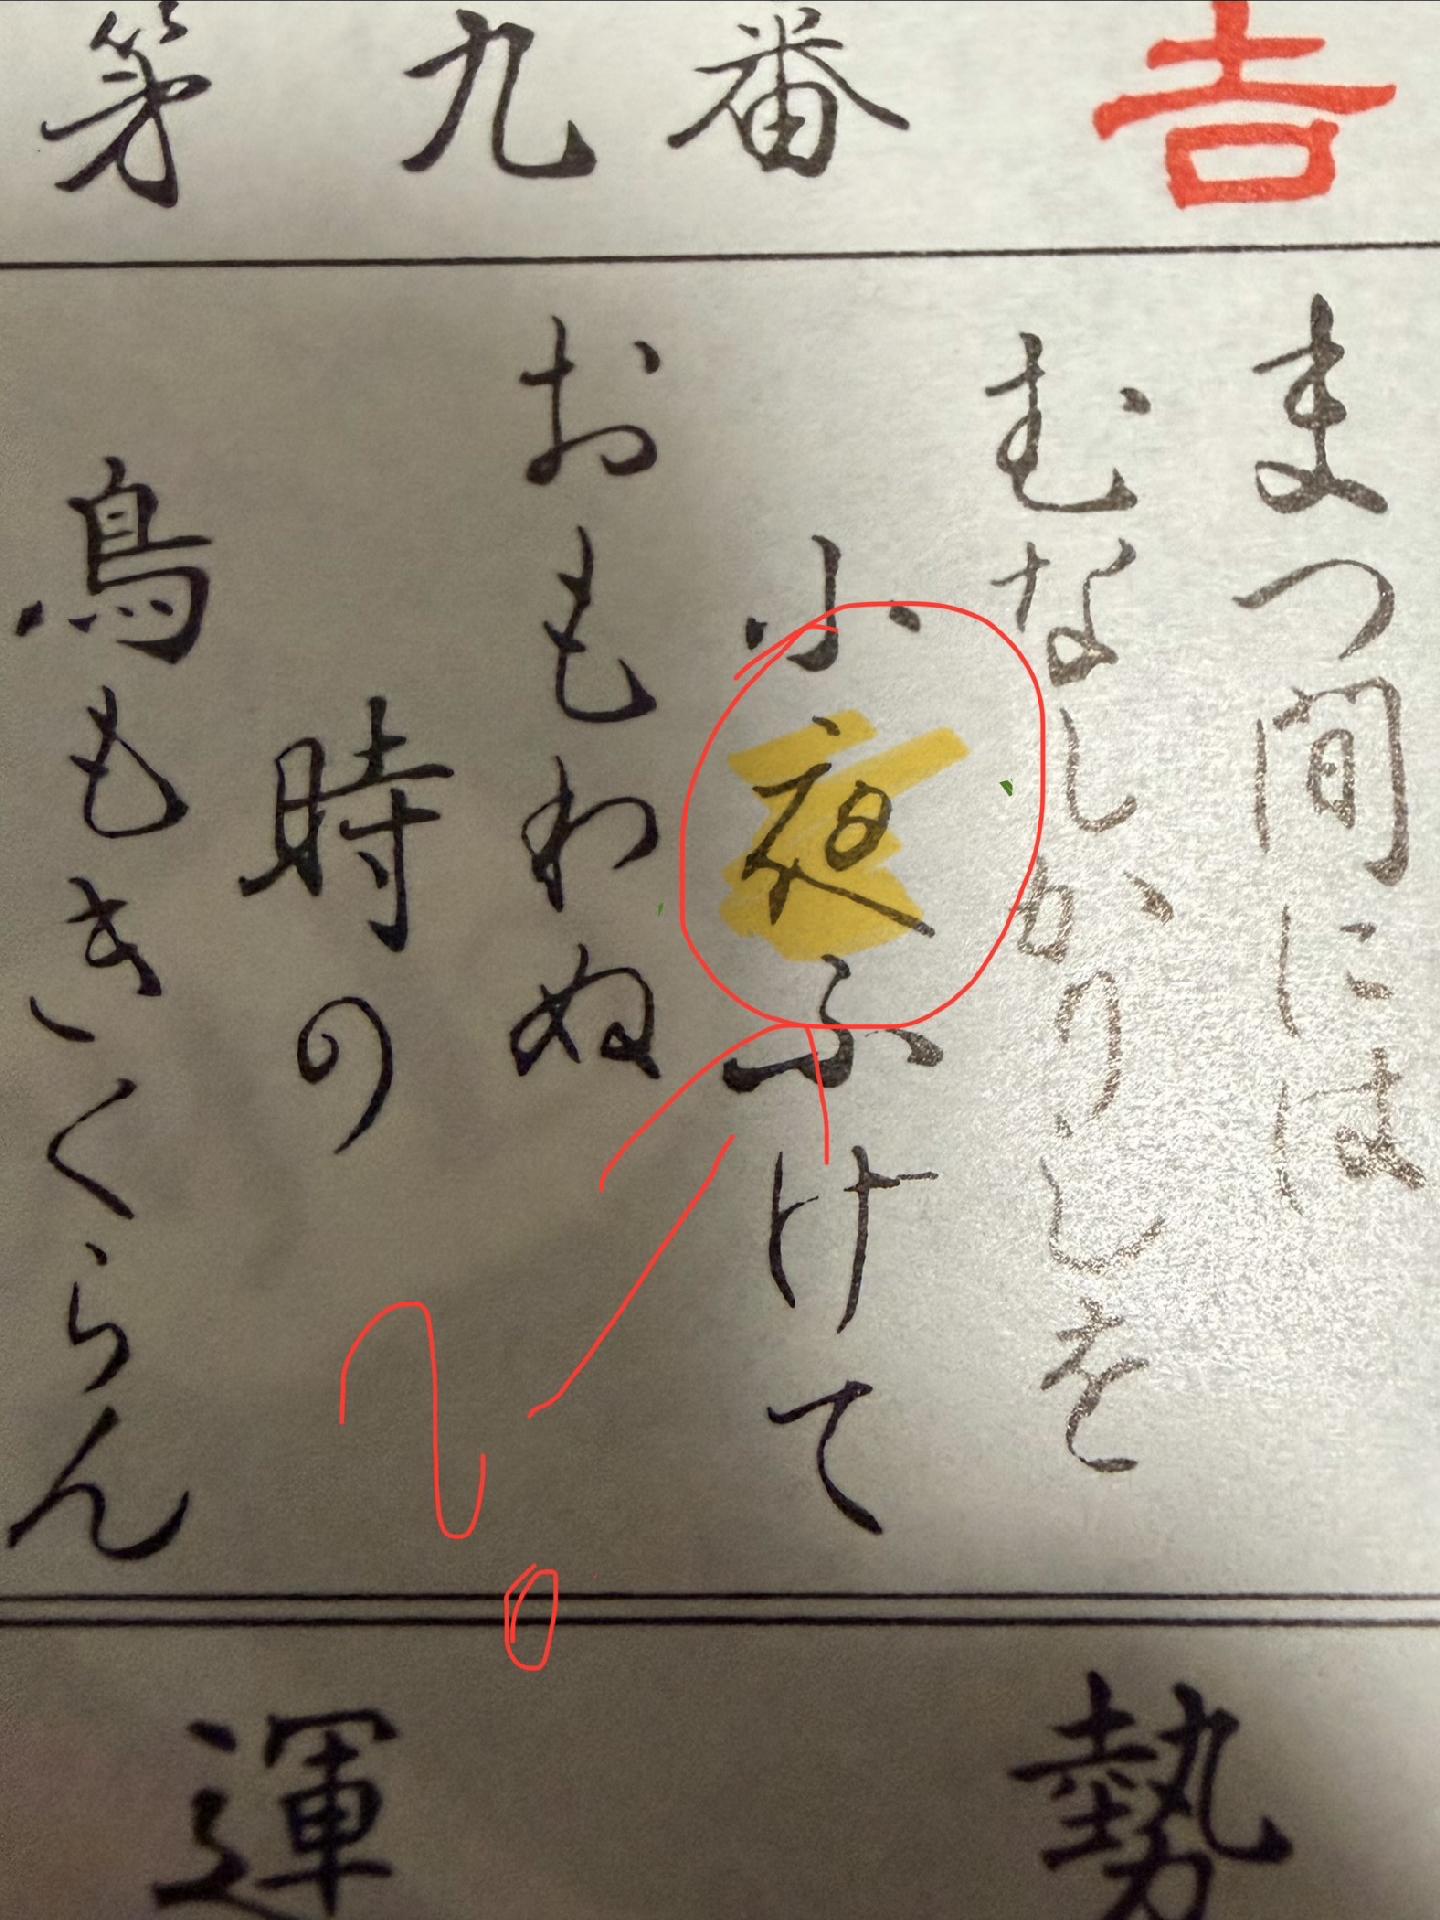 第九番 吉
まつ間には
むなしかりしを
小夜ふけて
おもわぬ
時の
鳥もきくらん
運勢